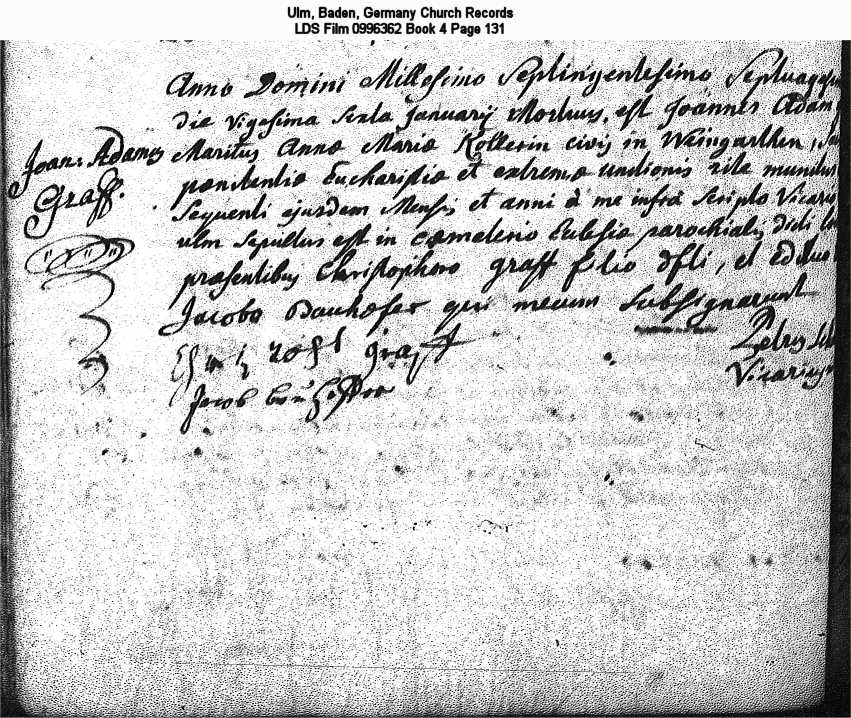 Ulm, Baden, Germany Church Records
LDS Film 0996362 Book 4 Page 131
Anno Domini Millesimo Septingentesimo
die vigesima sexta Januarij Mortuus est Joannes Adam
Joan: Adamus
Graff.
Maritus Annæ Mariæ Kollerin civis in Weingarthen,
pœnitentiæ Eucharistiæ et extremæ unctionis rite munitus
sequenti ejusdem Mensis et anni à me infra scripto Vicario
ulm sepultus est in cœmeterio Eclesiæ parochialis dicti
præsentibus Christophoro graff filio dfti, et Edituo
Jacobo Bauhofer qui mecum subsignarunt
graff
Petrus
Jacob
Vicarius